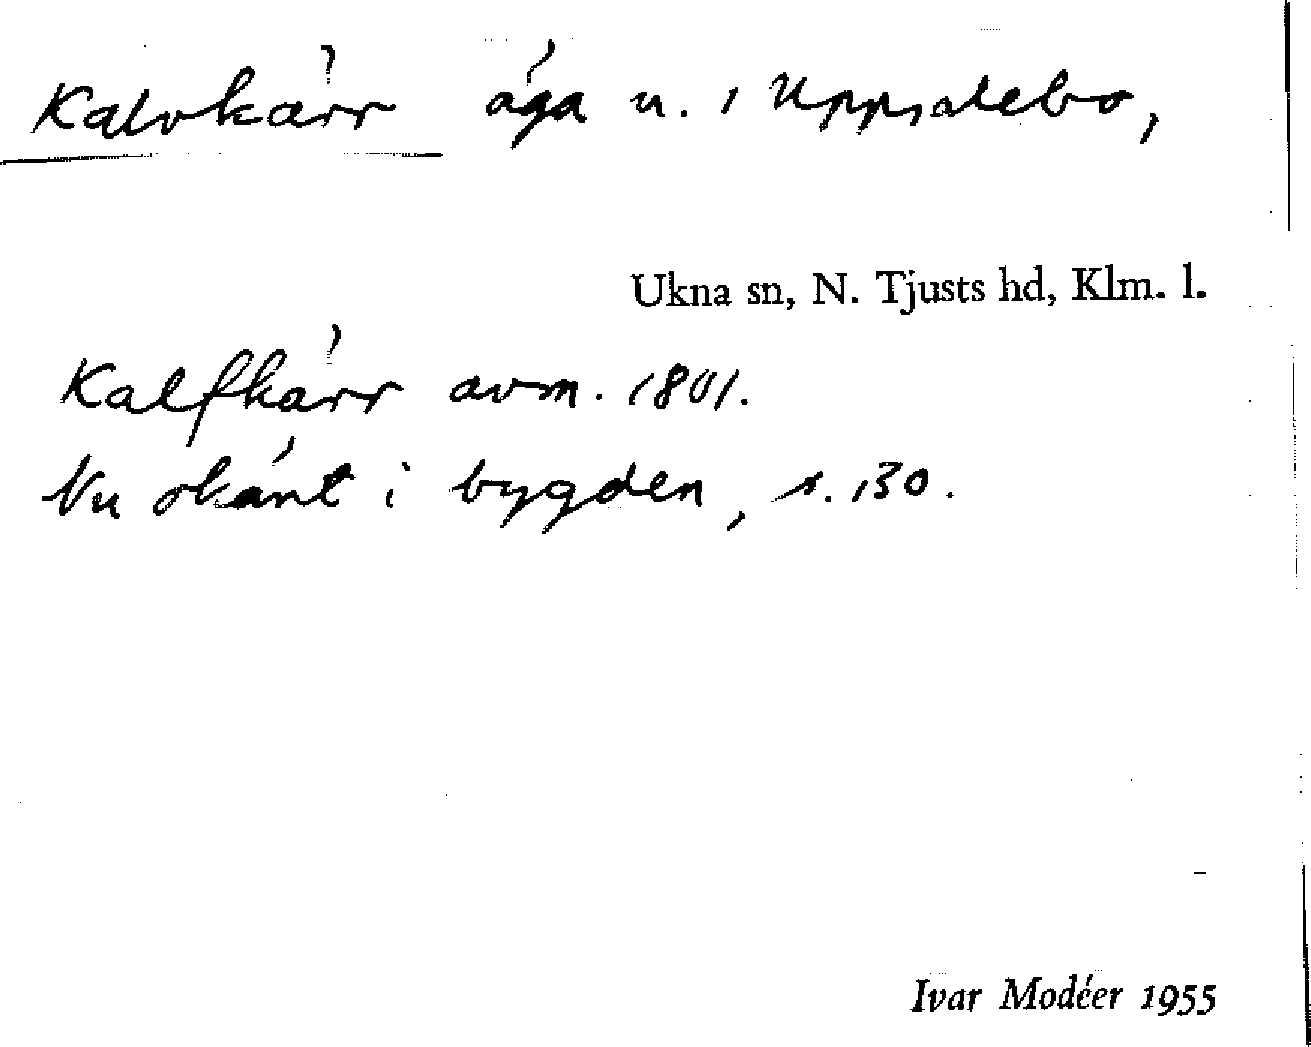 Kalvkärr äga u. i Uppsalebo,
Ukna sn, N. Tjusts hd, Klm. l.
Kalfkärr avm. 1801.
Nu okänt i bygden, s. 130.
Ivar Modéer 1955